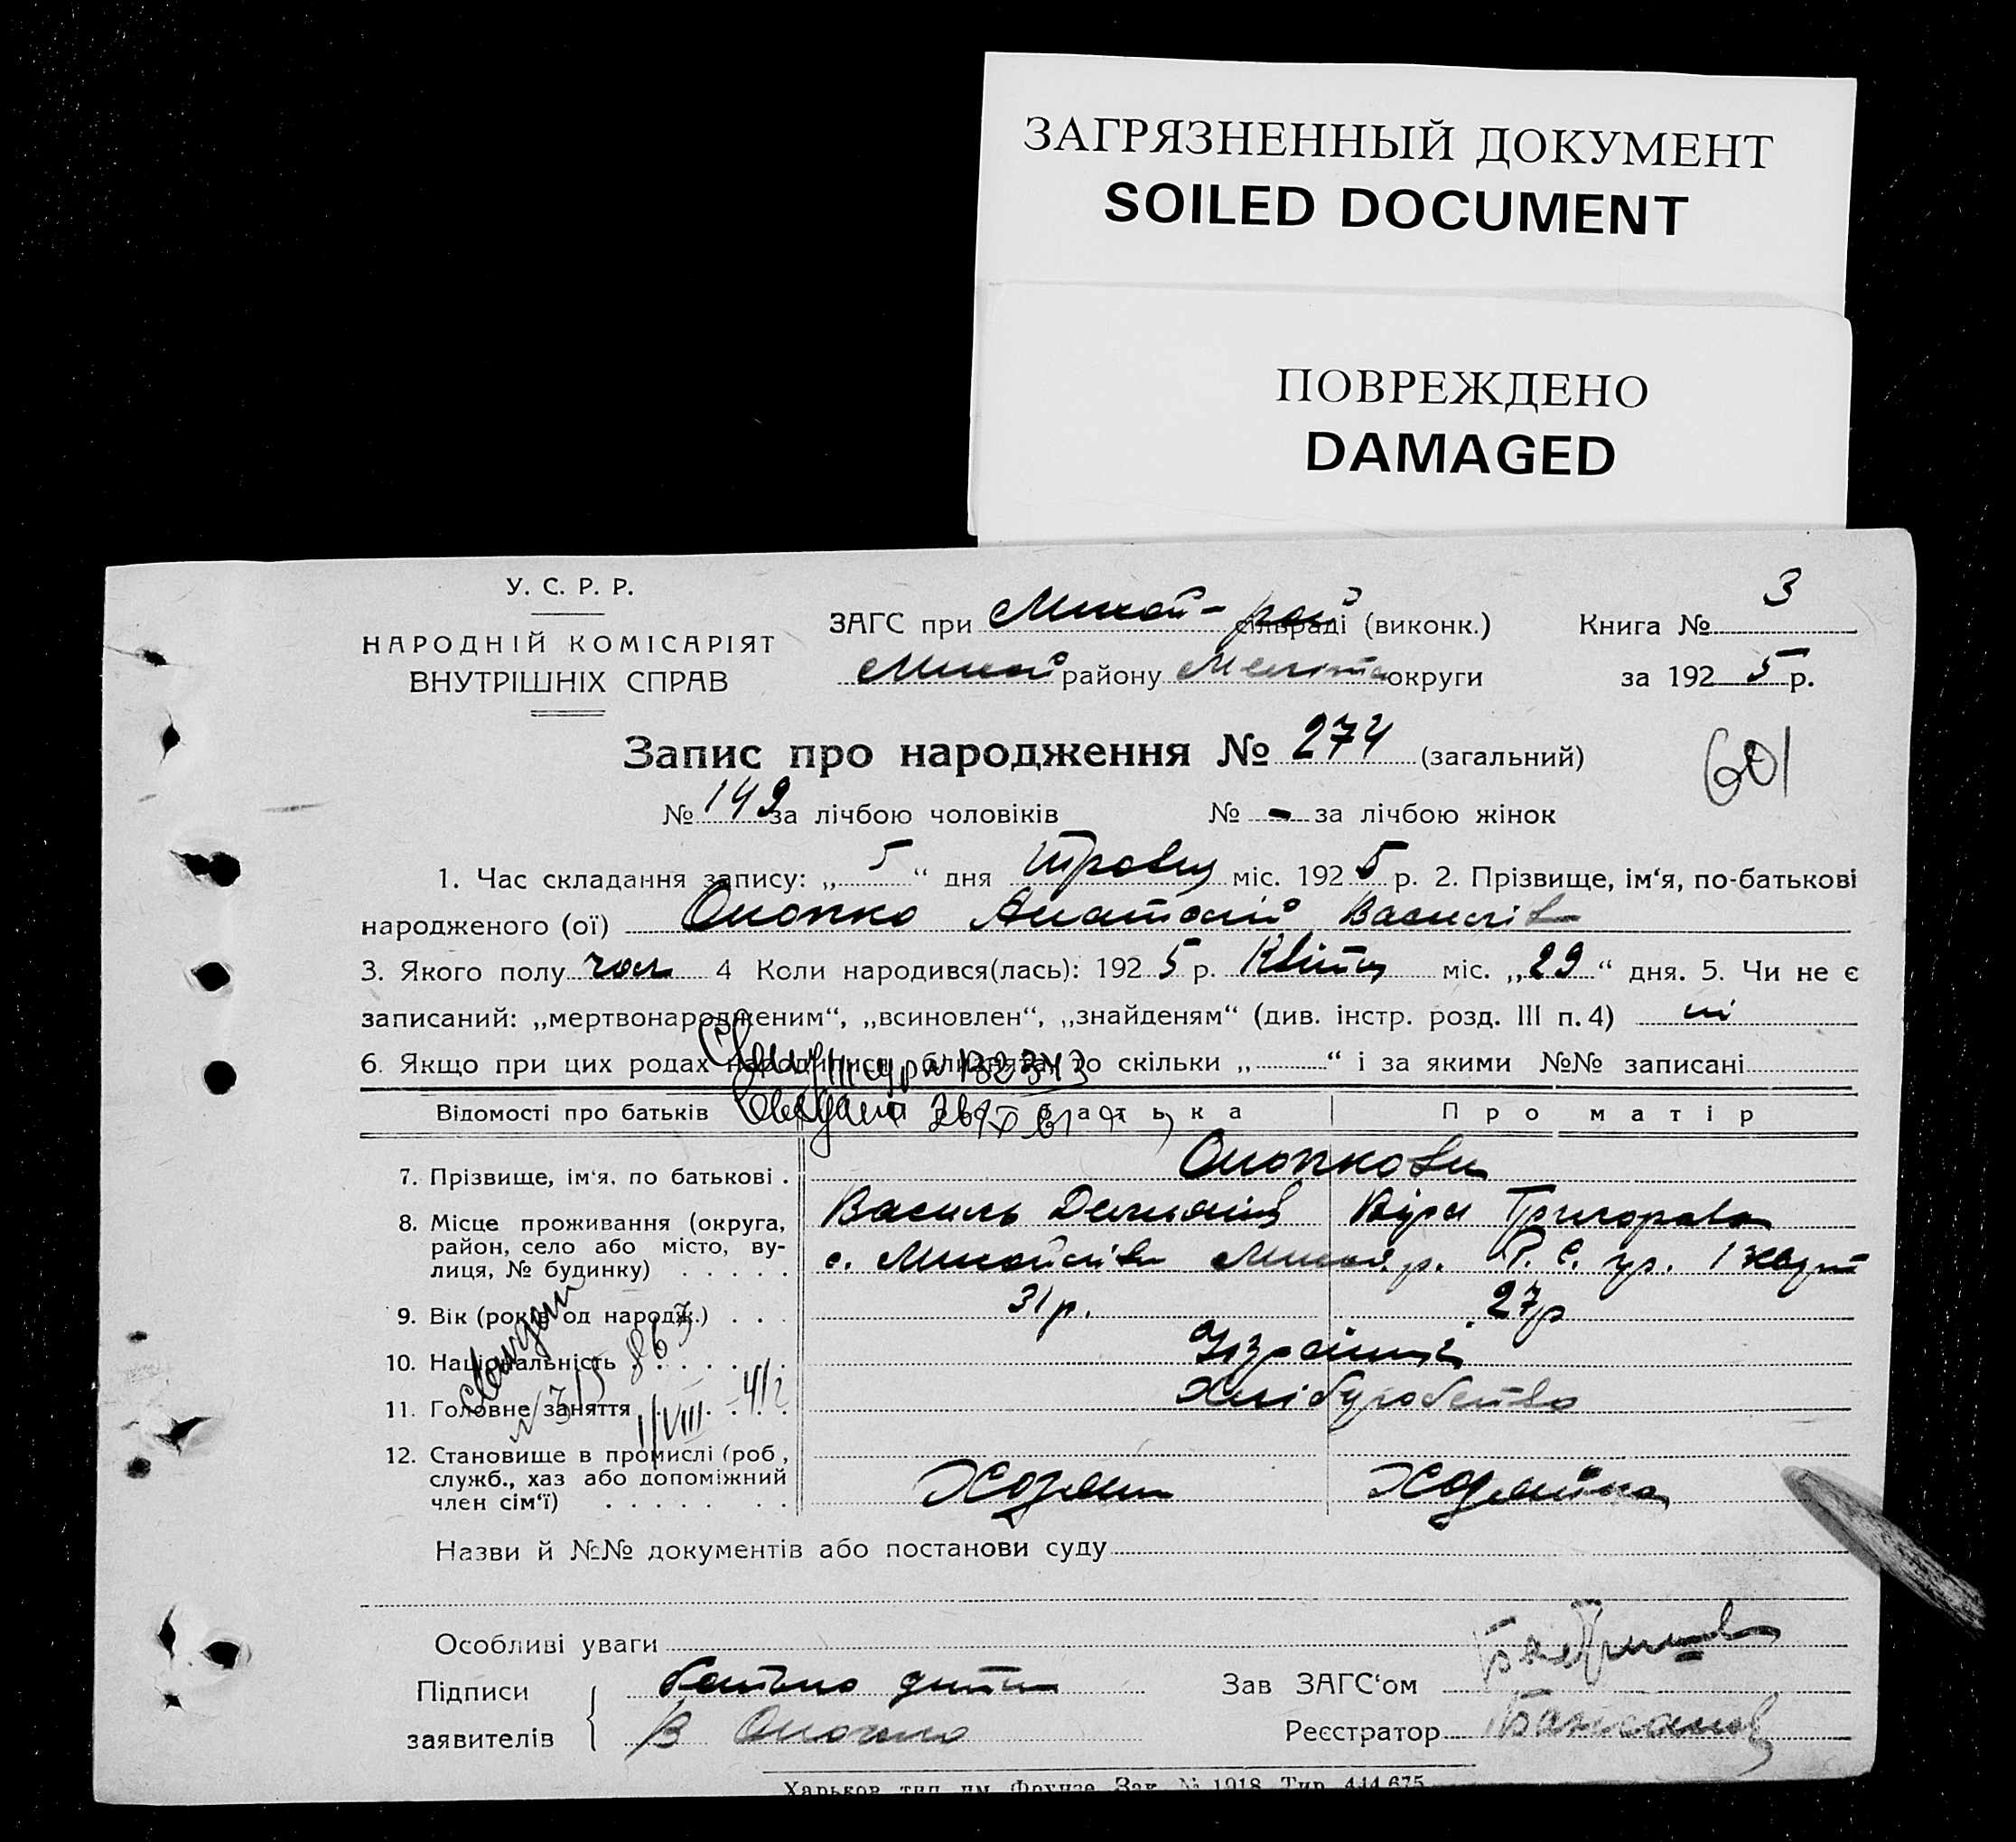 ЗАГРЯЗНЕННЫЙ ДОКУМЕНТ
SOILED DOCUMENT
ПОВРЕЖДЕНО
DAMAGED
У. С. Р. Р.
НАРОДНІЙ КОМІСАРІЯТ
ВНУТРІШНІХ СПРАВ
ЗАГС при сільраді (виконк.)
району округи
Книга № 3
за 1925 р.
Запис про народження № 274 (загальний)
601
№ 149 за лічбою чоловіків № - за лічбою жінок
1. Час складання запису: „5“ дня Травця міс. 1925 р. 2. Прізвище, ім‘я, по-батькові
народженого (ої) Онопко Анатолій Василів
3. Якого полу чол 4 Коли народився(лась): 1925 р. Квітця міс. „29“ дня. 5. Чи не є
записаний: „мертвонародженим“, „всиновлен“, „знайденям“ (див. інстр. розд. III п. 4) ні
6. Якщо при цих родах народилися близнята, то скільки „ “ і за якими №№ записані
Відомості про батьків Про батька Про матір
7. Прізвище, ім‘я, по батькові . Онопкови
Василь Демянів Віра Григоровна
8. Місце проживання (округа,
район, село або місто, ву-
лиця, № будинку) . . . . .
9. Вік (років од народж.) . . . 31 р. 27 р
10. Національність . . . . . . Українці
11. Головне заняття . . . . . Хліборобство
12. Становище в промислі (роб,
служб., хаз або допоміжний
член сім‘ї) . . . . . . . Хозяин Хозяйка
Назви й №№ документів або постанови суду
Особливі уваги
Підписи батько дитини Зав ЗАГС‘ом
заявителів В Онопко Реєстратор
Харьков, тип. им. Фрунзе. Зак. № 1918. Тир. 444.675